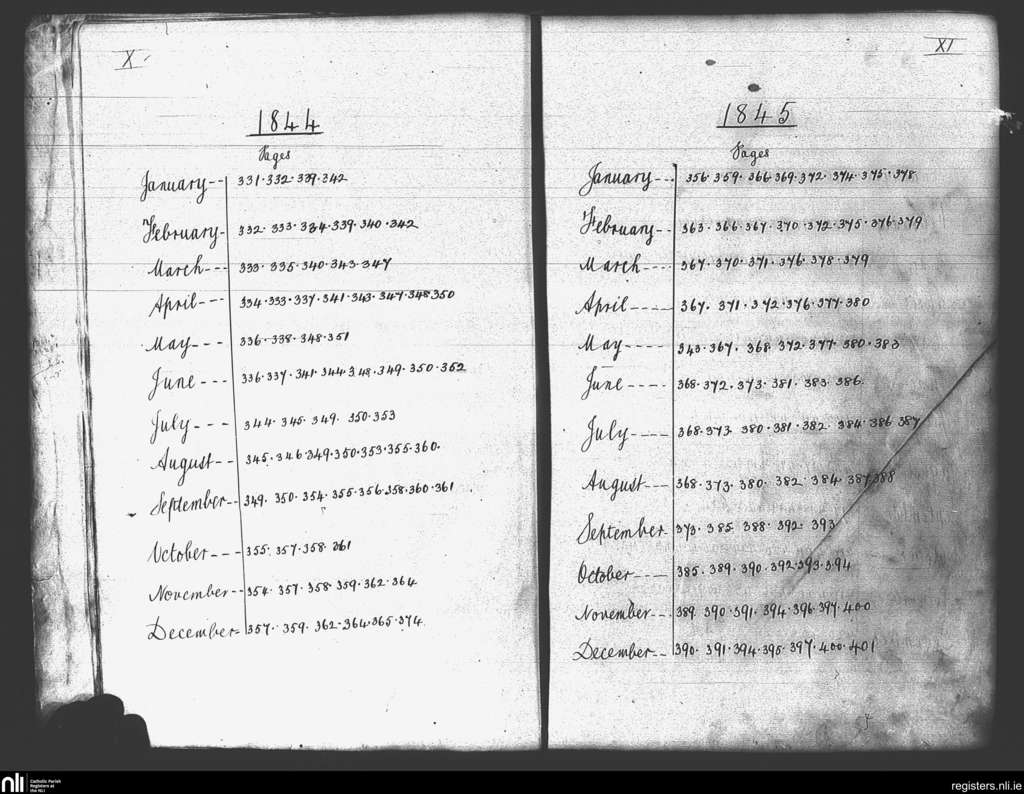 X
1844
Pages
January-- 331·332·339·342
February- 332·333·334·339·340·342
March--- 333·335·340·343·347
April--- 334·333·337·341·343·347·348·350
May--- 336·338·348·351
June--- 336·337·341·344·348·349·350·352
July--- 344·345·349·350·353
August-- 345·346·349·350·353·355·360·
September-- 349·350·354·355·356·358·360·361
October--- 355·357·358·361
November-- 354·357·358·359·362·364
December- 357·359·362·364·365·374
XI
1845
Pages
January--- 356·359·366·369·372·374·375·378
February-- 363·366·367·370·372·375·376·379
March---- 367·370·371·376·378·379
April---- 367·371·372·376·377·380
May---- 343·367·368·372·377·380·383
June---- 368·372·373·381·383·386
July---- 368·373·380·381·382·384·386·387
August--- 368·373·380·382·384·387·388
September- 373·385·388·392·393
October---- 385·389·390·392·393·394
November--- 389·390·391·394·396·397·400
December-- 390·391·394·395·397·400·401
nli
Catholic Parish
Registers at
the NLI
registers.nli.ie